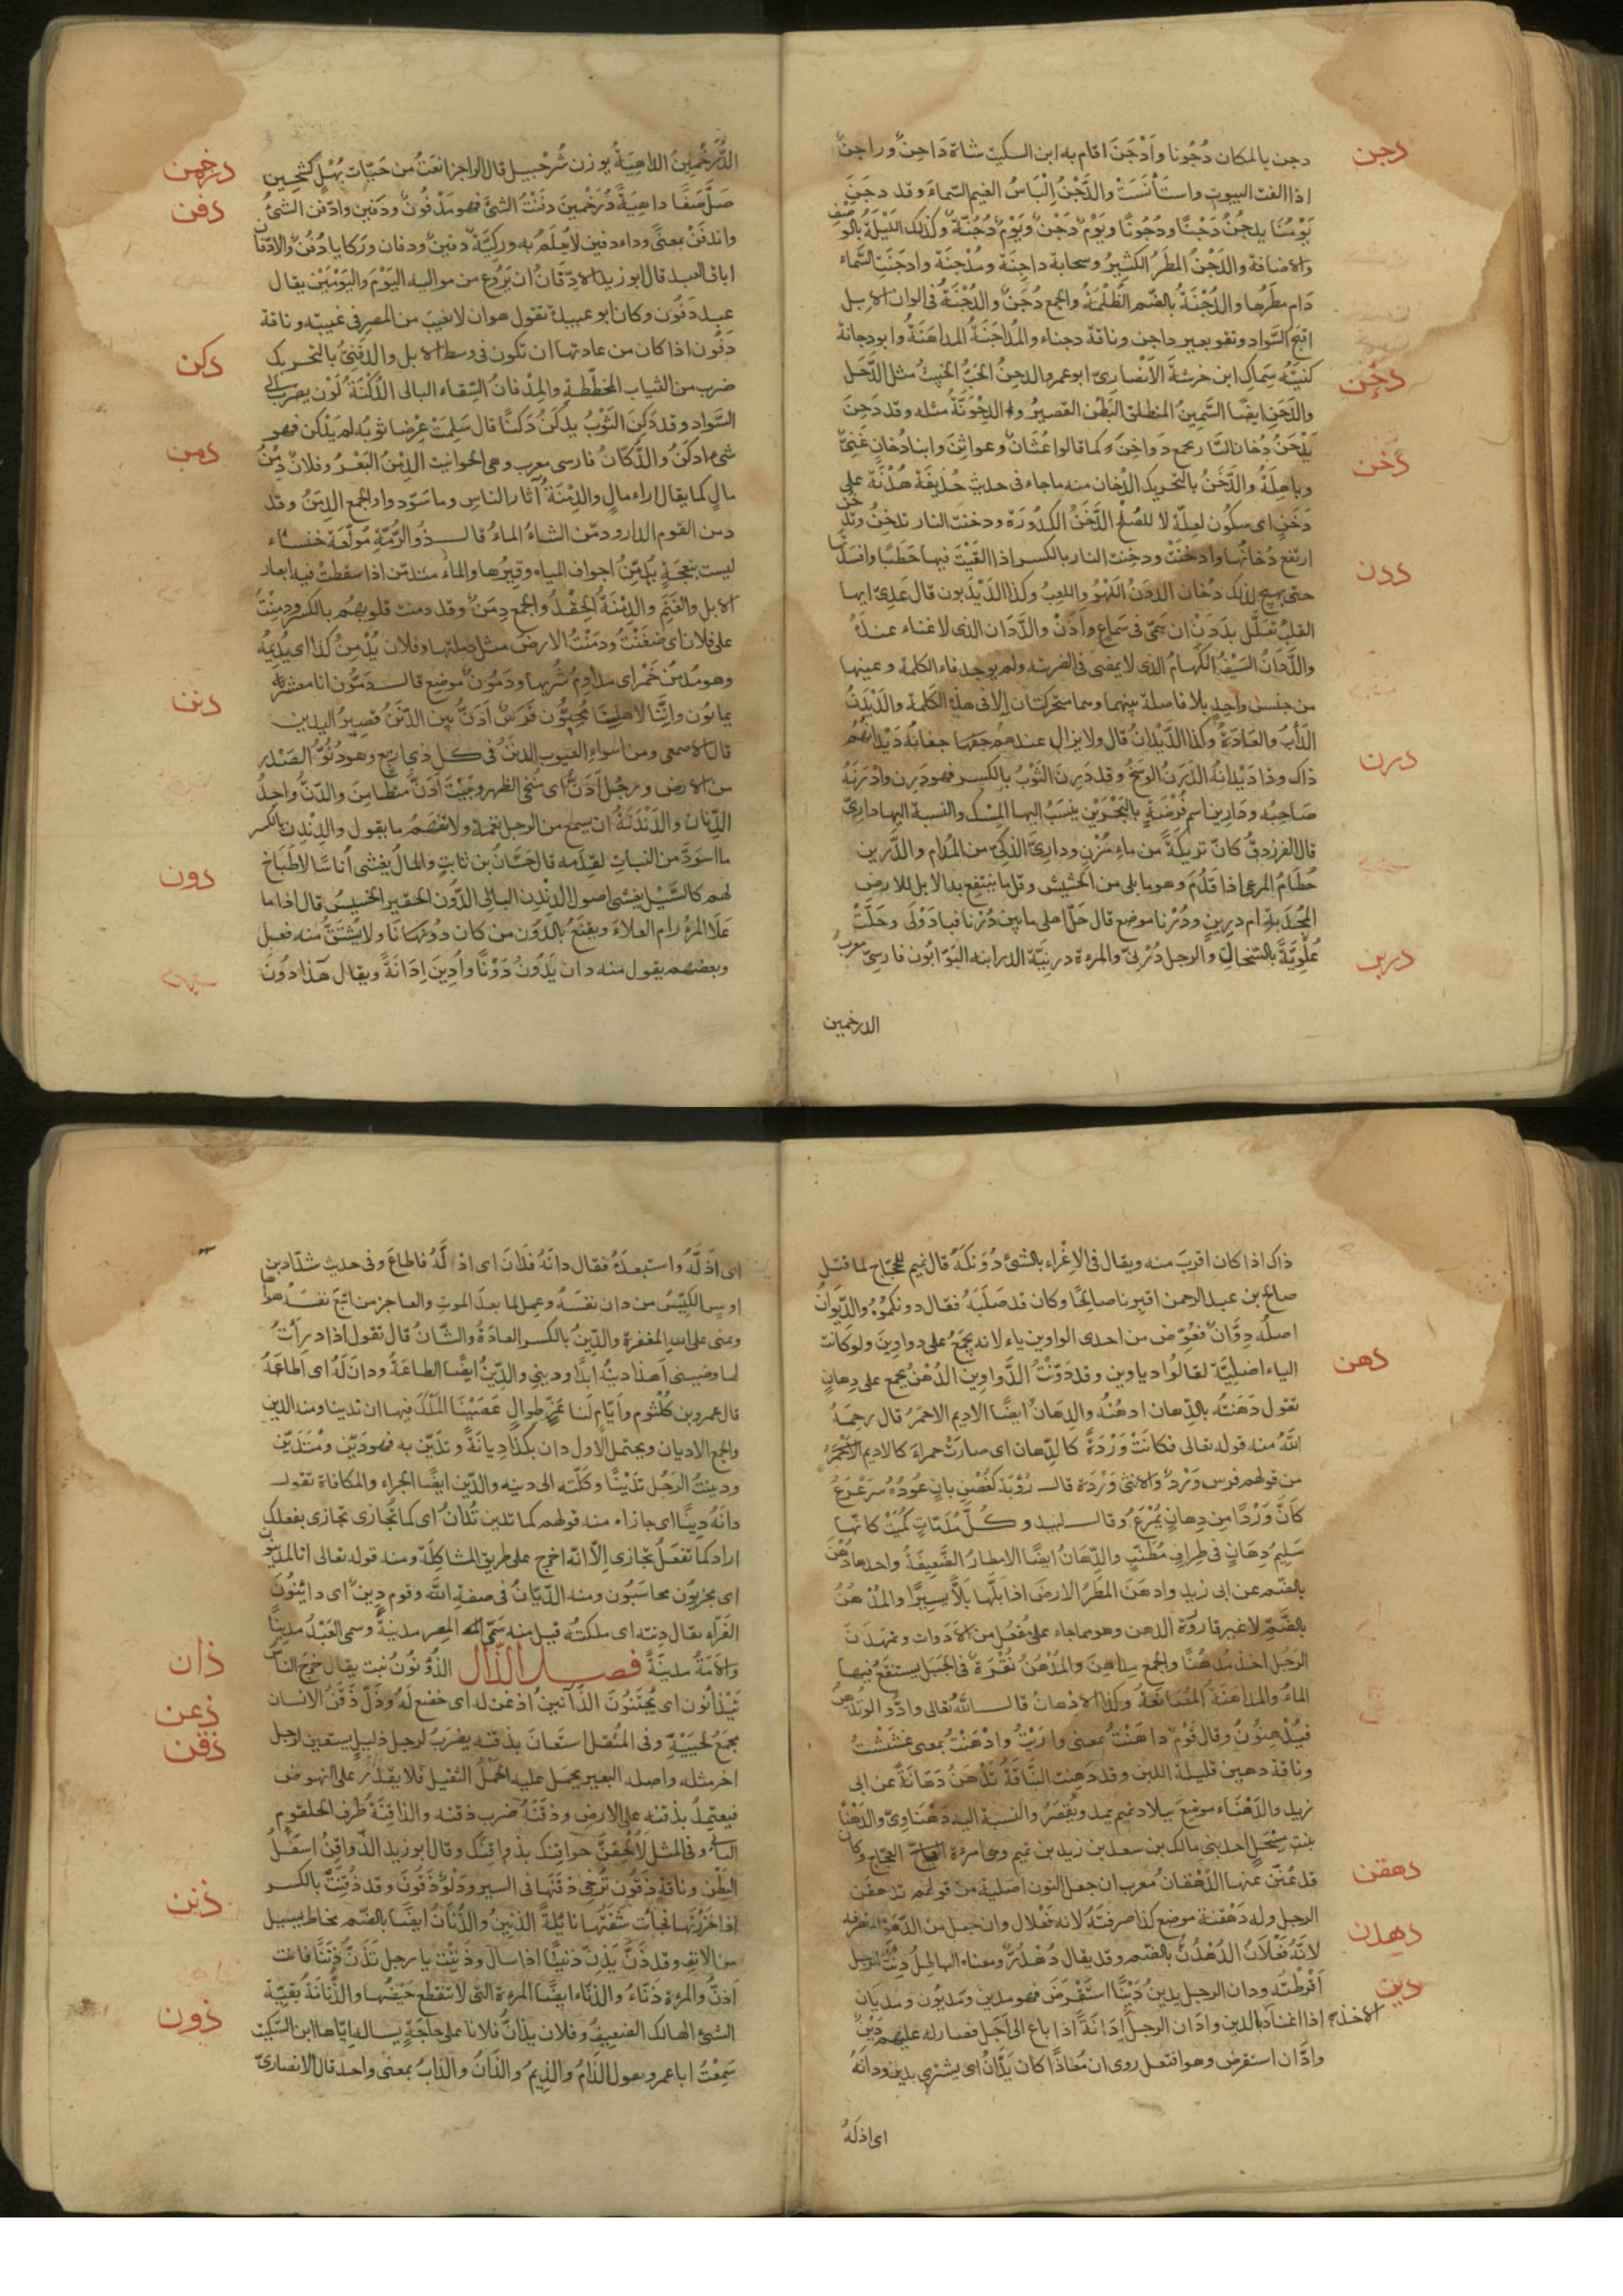 دجن
دجن بالمكان دُجُونا وأَدْجَنَ اقام به ابن السكيت شاة دَاجِنٌ وراجِنٌ
اذا الفت البيوت واستَأْنَسَتْ والدَّجْنُ إِلْبَاسُ الغيم السَّماءَ وقد دجَنَ
يَوْمُنَا يدجُنُ دَجْنًا ودُجُونًا ويَوْمٌ دَجْنٌ ويَوْمٌ دُجُنَّةٌ وكذلك الليْلَةُ بالوصْفِ
والاضافة والدَّجْنُ المطَرُ الكثِيرُ وسحابة داجِنَة ومُدْجِنَة وادجَنَتِ السَّماء
دَام مطَرُها والدُّجْنَةُ بالضّم الظُّلْمَةُ والجمع دُجَنٌ والدُّجْنَةُ فى الوان الابل
اقبح السَّواد وتقو بعير داجن وناقة دجناء والمُدَاجَنَةُ المداهَنَةُ وابو دجانة
دحن
كنيتُه سِمَاك ابن خرشة الأَنْصَارىّ ابو عمرو الدحِنُ الخَبُّ الخبيثُ مثل الدَّحَل
والدَّحَنِ ايضًا السَّمِينُ المنطلق البَطْن القصيرُ وله الدِحْوَنَّةُ مثله وقد دَحِنَ
دخن
يَدْحَنُ دُخان النَّار جمع دَوَاخِنَ كما قالوا عُثَانٌ وعواثِنَ وابنا دُخانٍ غنِىٌّ
وباهِلَةُ والدَّخَنُ بالتحريك الدُّخان منه ما جاء فى حديث حُذيفَة هُدْنَةٌ على
دَخَنٍ اى سكُون لعِلّة لا للصُلح الدَّخَنُ الكدُورَة ودخنت النار تدخِنُ وتدْخُن
ددن
ارتفع دُخانُها وادخَنَتْ ودخِنت النار بالكسر اذا القَيْتَ فيها حَطَبًا وافسَدْتَها
حتى يهيج لذلك دُخَان الدَدَنُ اللَّهْوُ واللعِبُ وكذا الدَّيْدَبون قال عَدِىّ ايها
القلبُ تعَلَّل بدَدَنْ ان هَمّى فى سَمَاعٍ وأَذَنْ والدَّدَان الذى لا غناء عندَهُ
والدَّدَانُ السَيْفُ الكَهَامُ الذى لا يمضى فى الضريبة ولم يوجد فاء الكلمة وعينها
من جنسٍ واحدٍ بلا فاصلة بينهما وهما متحركتان الا فى هذه الكَلِمة والدَّيْدَنُ
درن
الدَّأْبُ والعَادَةُ وكذا الدَّيْدَانُ قال ولا يزال عندهم جفَانُها جفانُهُ دَيْدَانُهُمْ
ذاك وذا دَيْدَانهُ الدَّرَنُ الوَسَخُ وقد دَرِنَ الثَوْبُ بالكسر فهو دَرِن وأَدْرَنَهُ
صَاحِبُه ودَارِين اسم فُرْضَةٍ بالبَحْرَيْن ينسَبُ اليها المِسْك والنسبة اليها دارِيّ
قال الفرزدقُ كانّ تريكَةً من ماءِ مُزْنٍ ودارِىَّ الذكىِّ من المُدام والدَّرِين
حُطَامُ المرعى اذا قَدُمَ وهو ما بلى من الحشِيش وقل ما ينتفع به الابل للارض
المُجْدِبة ام درِينٍ ودُرْنا موضع قال حَلّ اهلى ما بين دُرْنا فبادَوْلَى وحَلَّتْ
دربن
عُلْوِيَّةً بالسّخال والرجل دُرْنىٌّ والمرءة درنِيَّة الدرابنه البَوّابُون فارسىّ معرب
الدرخمين
درخمن
الدُّرَخْمِينُ الداهِيَةُ بوزن شُرَحْبيل قال الراجز انعَتُ من حَيّات بُهْلٍ كُشُحين
دفن
صِلَّ صَفًا داهِيَةً دُرَخْمِينَ دفَنْتُ الشئَ فهو مَدْفُونٌ ودَفِين وادّفن الشئُ
واندفَنَ بمعنًى وداء دفِين لا يُعلَمُ به ورَكِيَّةٌ دفِينٌ ودِفان ورَكايا دُفُنٌ والادّفان
اباق العبد قال ابو زيد الادّفَانُ ان يَرُوغ من مواليه اليَوْمَ واليَوْمَيْنِ يقال
عبد دَفُون وكان ابو عبيدة تقول هو ان لا يغيبَ من المصر فى غيبته وناقة
دكن
دَفُون اذا كان من عادتها ان تكون فى وسط الابل والدَفَنِىُّ بالتحريك
ضرب من الثياب المخطّطة والمِدْفانُ السِّقاء البالى الدُّكْنَةُ لَوْن يضرب الى
السَّواد وقد دَكِنَ الثَوْبُ يدْكَنُ دَكَنًا قال سَلِمَتْ عِرْضا ثوبُه لم يَدْكن فهو
دمن
شىء ادكَنُ والدُّكّانُ فارسى معرب وهى الحوانيت الدِمْنُ البَعْرُ وفلانٌ دِمْنُ
مالٍ كما يقال ازاء مالٍ والدِمْنَةُ آثار الناسِ وما سَوّدوا والجمع الدِمَنُ وقد
دمن القوم الدار ودمّن الشاءُ الماءَ قال ذُو الرُمّةِ مُولّعَة خنساء
ليست بنعجَةٍ يُدَمِّنُ اجوافَ المياه وقيرُها والماءُ متدمّن اذا سقطت فيه ابعار
الابل والغَنَم والدِمْنَةُ الحِقْدُ والجمع دِمَنٌ وقد دمنت قلوبهُم بالكسر ودمِنْتُ
على فلان اى ضغَنْتُ ودمَنْتُ الارض مثل دملتها وفلان يُدْمِنُ كذا اى يُدِيمُه
دنن
وهو مُدْمِنُ خَمْر اى مداوِمُ شُرْبها ودَمّون موضع قال دَمّون انا معشر
يمانون وانّنا لاهلِنا مُحِبّون فَرَسٌ أَدَنُّ بيّن الدَّنَنُ قصِيرُ اليدين
قال الاصمعى ومن اسواء العيوب الدَننُ فى كل ذى اربَع وهو دُنُوّ الصَدْر
من الارض ورجُل أَدَنُّ اى مُنْحَنى الظهر وبَيْتٌ أدَنُّ متَطَامِن والدّنُّ واحِدُ
الدِّنان والدَّنْدَنَةُ ان يسمع من الرجل نغمةً ولا تفهَمُ ما يقول والدِنْدِن بالكسر
دون
ما اسوَدَّ من النبات لقِدَمه قال حَسّانُ بن ثابتٍ والمالُ يغشى أُناسًا لا طَبَاخ
لهم كالسَّيْل يغشى اصول الدِنْدِن البالى الدُّون الحقير الخسيس قال اذا ما
عَلَا المرْءُ رام العلاءَ ويقنَعُ بالدُون من كان دُونًا ولا يُشتَقُّ منه فعل
وبعضهم يقول منه دان يَدُون دَوْنًا وأُدِينَ إِدَانَةً ويقال هَذا دُونَ
ذاك اذا كان اقرب منه ويقال فى الاغراء بالشئ دُونكَهُ قال تميم للحجّاج لما قتل
صالح بن عبد الرحمن اقبِرنا صالحًا وكان قد صَلَبَهُ فقال دونكمُوهُ والدّيوَانُ
اصلُه دِوَّانٌ فعُوّض من احدى الواوين ياء لانه يجْمَعُ على دواوينَ ولو كانت
دهن
الياء اصْلِيّةً لقالُوا دياوين وقد دَوّنْتُ الدَّواوينَ الدُهْنُ يجمع على دِهانٍ
تقول دَهَنتُه بالدِّهان ادهُنُهُ والدِهَانُ ايضًا الاديم الاحمرُ قال رحِمَهُ
اللهُ منه قوله تعالى فكانَتْ وَرْدَةً كالدِّهان اى صارتْ حمراءَ كالاديم الاحْمَر
من قولهم فرس وَرْدٌ والانثى وَرْدَة قال رُؤبَة كغُصْنِ بانٍ عُودُهُ سَرَعْرَعُ
كأَنَّ وَرْدًا من دِهانٍ يُمْرَعُ وقال لبيد وكُلَّ مُدَمّاتٍ كُمَيْتٍ كانّها
سَلِيمُ دِهَانٍ فى طِرافٍ مُطَنّبِ والدِّهَانُ ايضًا الامطارُ الضَّعِيفَةُ واحدها دُهْنٌ
بالضّم عن ابى زيد وادهَنَ المطَرُ الارضَ اذا بَلَّها بَلًّا يسِيرًا والمُدْهُنُ
بالضَّمّ لا غير قارُوَرة الدهن وهو مما جاء على مُفْعُل من الأدَوات وتمَدْهَنَ
الرجُل اخذ مُدْهُنًا والجمع مداهن والمُدْهُنُ نُقْرَةٌ فى الجبَل يستنقِعُ فيها
الماءُ والمداهَنَةُ المُصَانَعَةُ وكذا الادْهانُ قال اللهُ تعالى ودّوا لو تُدْهِنُ
فيُدْهِنُونُ وقال قَوْمٌ داهَنْتُ بمعنى وارَيْتُ وادْهَنْتُ بمعنى غشَشْتُ
وناقة دهين قليلة اللبن وقد دَهِنت النَّاقةُ تدْهَنُ دَهَانَةً عن ابى
زيد والدَهْنَاء موضِعٌ ببلاد تميم يمدّ ويقصَرُ والنسبَة اليه دَهْنَاوِىّ والدَهْنا
بنت مِسْحَلٍ احد بنى مالك بن سعد بن زيد بن تميم وهى امرءة العجّاج وكان
دهقن
قد عُنّن عنها الدِّهْقانُ معرب ان جعل النون اصليةً من قولهم تدهقَن
الرجل وله دَهْقَنة موضع كذا صرفتَهُ لانه فِعْلال وان جعل من الدّهَق لم تصرفه
دهدن
لانّهُ فَعْلَانُ الدُّهْدُنُ بالضّم وقد يقال دُهْدُرٌّ ومعناه الباطِلُ دِنْتُ الرجل
دين
اقرَضْتُه ودان الرجل يدينُ دَيْنًا استَقْرَضَ فهو مدين ومَدْيُون ومِدْيَان
اذا اعتاد بالدين الاخذ وادَان الرجلُ إدَانَةً اذا باع الى اجَل فصار له عليهم دَيْنٌ
وادَّان استقرض وهو افتعل روى ان مُعاذًا كان يَدّانُ اى يشترِى بدين ودانَهُ
اى اذلَهُ
اى أَذَلَّهُ واستبعدَهُ فقال دانَهُ فدَانَ اى اذ لَّهُ فاطاعَ وفى حديث شدّاد بن
اوسٍ الكَيِّسُ من دان نفسَهُ وعمل لما بعدَ الموتِ والعاجز من اتبعَ نفسَهُ هواها
وتمنى على الله المغفرة والدِّينُ بالكسر العادَةُ والشّانُ قال تقول اذا درأتُ
لها وضينى أهذا دينُه ابدًا ودينى والدِّينُ ايضًا الطاعَةُ ودانَ لَهُ اى اطاعَهُ
قال عمرو بن كُلْثوم وأيّامٍ لنا غُرٍّ طوالٍ عصَيْنا المَلْكَ فيها ان ندينا ومنه الدين
والجمع الاديان ويحتمل الاول دان بكذا دِيانَةً وتديّن به فهو دَيّن ومُتَدَيّن
ودينتُ الرَجُل تديْنًا وكَلّته الى دينه والدِّين ايضًا الجزاء والمكافاة تقول
دانَهُ دِينًا اى جازاه منه قولهم كما تدين تُدانُ اى كما تجازى تجازى بفعلك
اراد كما تفعلُ تجازى إلّا انّه اخرج على طريق المشاكلَة ومنه قوله تعالى انا لمدينون
اى مجزيون محاسَبُون ومنه الدَّيّانُ فى صفة الله وقوم دِينٌ اى دائنُونَ
الفَرّاء يقال دِنته اى ملكتُه قيل منه سمّى المصر مدينةً وسمى العَبْدُ مدينًا
ذان
والامَةُ مدينَةً فصل الذّال الذُؤْنُونُ نبت يقال خرج الناسُ
ذعن
يَتَذَأنون اى يَجْتَنُونَ الذَآنينَ اذعَن له اى خضع لَهُ وذَلّ ذَقَنُ الانسان
ذقن
مجمَعُ لَحيَيْهِ وفى المُثقل استعَانَ بذقنه يضربُ لرجل ذليلٍ يستعين لرجل
اخر مثله واصله البعير يحمَل عليه الحمْلُ الثقيل فلا يقدر على النهوض
فيعتمدُ بذقنه على الارض وذقَنَهُ ضرب ذقنه والذاقِنَةُ طرف الحلقوم
وفى المثل لأُلْحِقَنَّ حواقنِك بذواقِنِك وقال ابو زيد الذّواقِنُ اسفَلُ
البَطْن وناقةٌ ذَقُون تُرْخِى ذقَنَها فى السير ودَلْوٌ ذَقُون وقد ذَقِنَتْ بالكسر
ذنن
اذا خَرَزْتَها فجاءَتْ شَفَتُها مائلةً الذَنِينُ والذُنانُ ايضًا بالضّم مخاط يسيل
من الانف وقد ذَنَّ يَذِنُّ ذنينًا اذا سالَ وذَنِنْتَ يا رجل تَذَنُّ ذَنَنًا فانت
اذنُّ والمرءة ذَنّاءُ والذنّاء ايضًا المرءة التى لا تنقطع حَيْضُها والذُّنانَةُ بقيّة
ذون
الشئ الهالك الضعِيفِ وفلان يذانُّ فلانا على حاجَةٍ يساله ايّاها ابن السّكيت
سَمِعْتُ ابا عمرو يقول الذَّامُ والذِيمُ والذَانُ والذابُ بمعنى واحد قال الانصارىّ